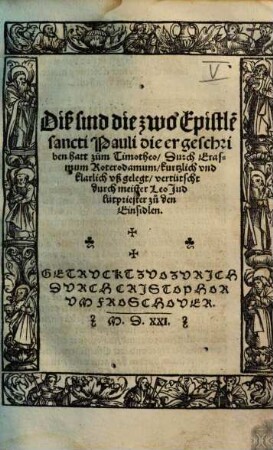 V
Diß sind die zwo Epistlē
sancti Pauli die er geschri
ben hatt zům Timotheo / Durch Eras-
mum Roterodamum / kurtzlich vnd
klarlich vß gelegt / vertütscht
durch meister Leo Jud
lütpriester zů den
Einsidlen.
GETRVCKT ZVO ZVRICH
DVRCH CRISTOPHOR
VM FROSCHOVER.
M. D. XXI.